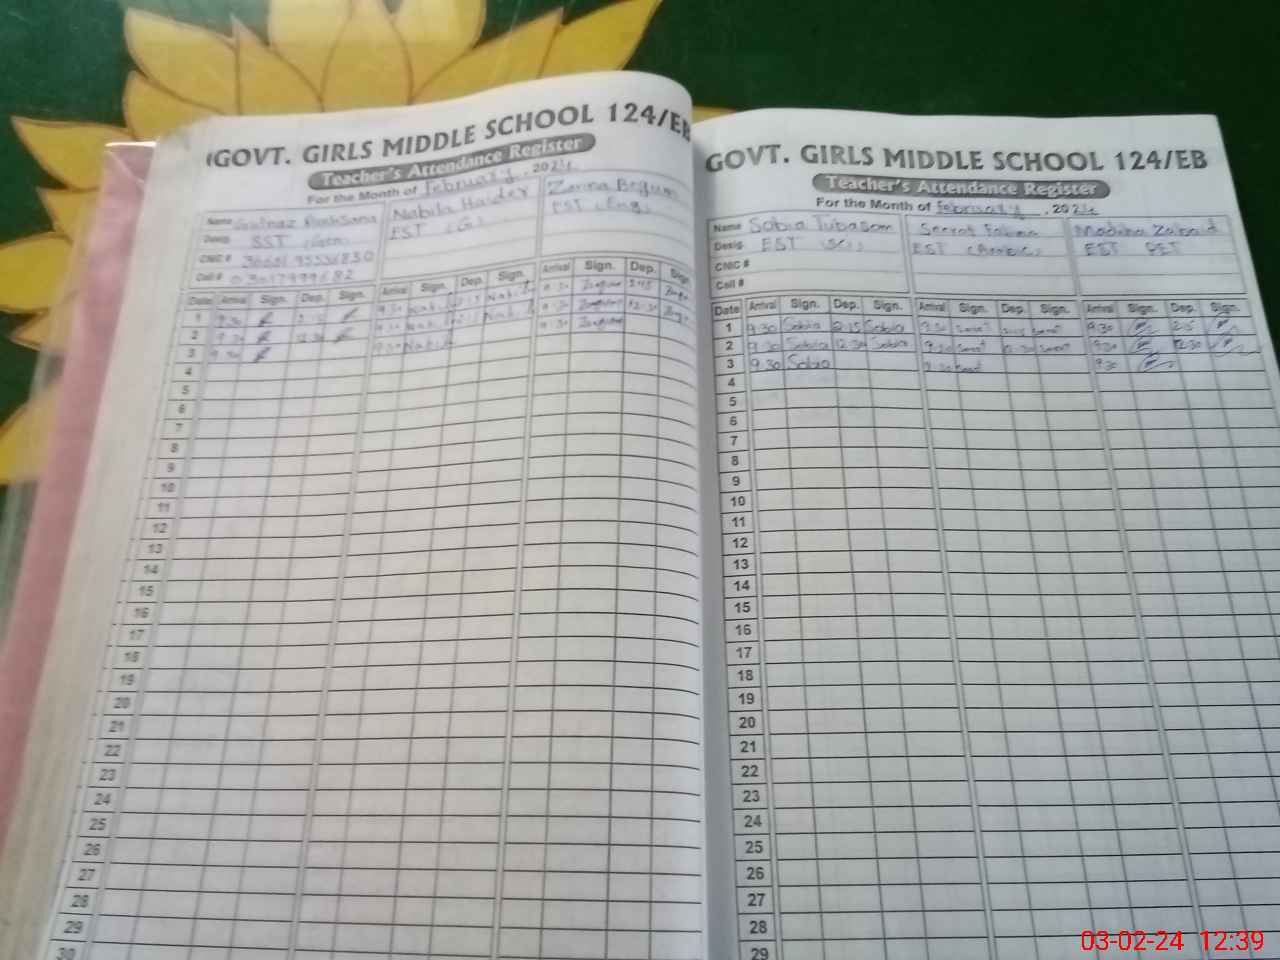 GOVT. GIRLS MIDDLE SCHOOL 124/EB
Teacher's Attendance Register
For the Month of February, 2024
Name Gulnaz Rukhsana Nabila Haider Zarina Begum
Desig. SST (Gen) EST (G) EST (Eng)
CNIC #
Cell #
Date Arrival Sign. Dep. Sign. Arrival Sign. Dep. Sign. Arrival Sign. Dep. Sign
1 9.30 2.15 9.30 Nabila 2.15 Nabila 9.30 2:15
2 9.30 12.30 9.30 Nabila Nabila 9.30 12.30
3 9.30 9.30 Nabila 9.30
4
5
6
7
8
9
10
11
12
13
14
15
16
17
18
19
20
21
22
23
24
25
26
27
28
29
30
GOVT. GIRLS MIDDLE SCHOOL 124/EB
Teacher's Attendance Register
For the Month of February, 2024
Name Sobia Tubasom Seerat Fatima Madiha
Desig. EST (Sc) EST (Arabic) EST PET
CNIC #
Cell #
Date Arrival Sign. Dep. Sign. Arrival Sign. Dep. Sign. Arrival Sign. Dep. Sign.
1 9.30 Sobia 2.15 Sobia 9.30 Seerat 2.15 Seerat 9.30 2.15
2 9.30 Sobia 12.30 Sobia 9.30 Seerat 12.30 Seerat 9.30 12.30
3 9.30 Sobia 9.30 Seerat 9.30
4
5
6
7
8
9
10
11
12
13
14
15
16
17
18
19
20
21
22
23
24
25
26
27
28
29
03-02-24 12:39